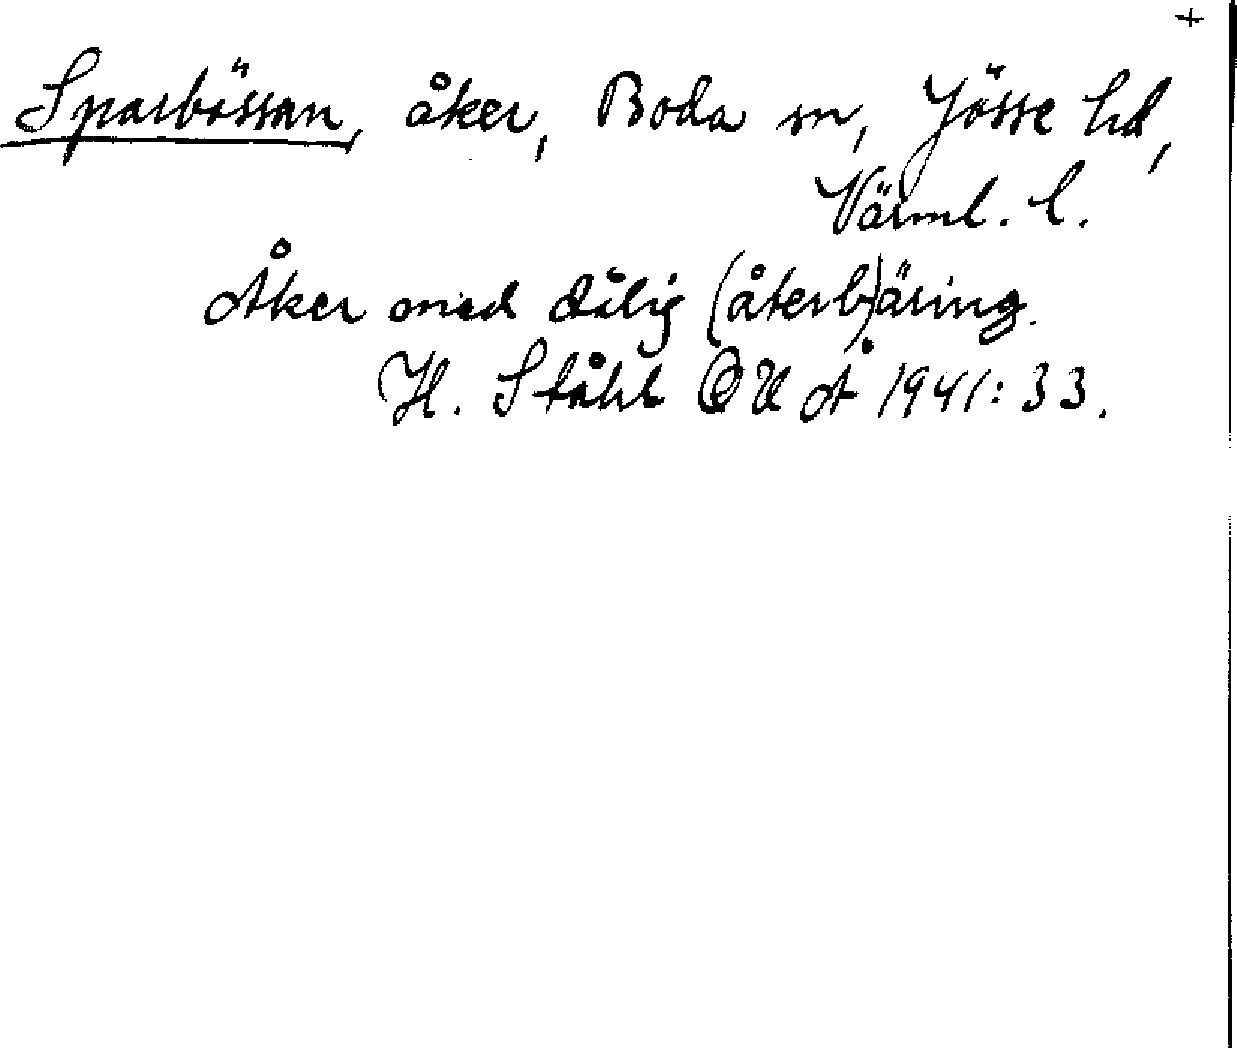 +
Sparbössan, åker, Boda sn, Jösse hd,
Värml. l.
Åker med dålig (återb)äring.
H. Ståhl OUÅ 1941: 33.